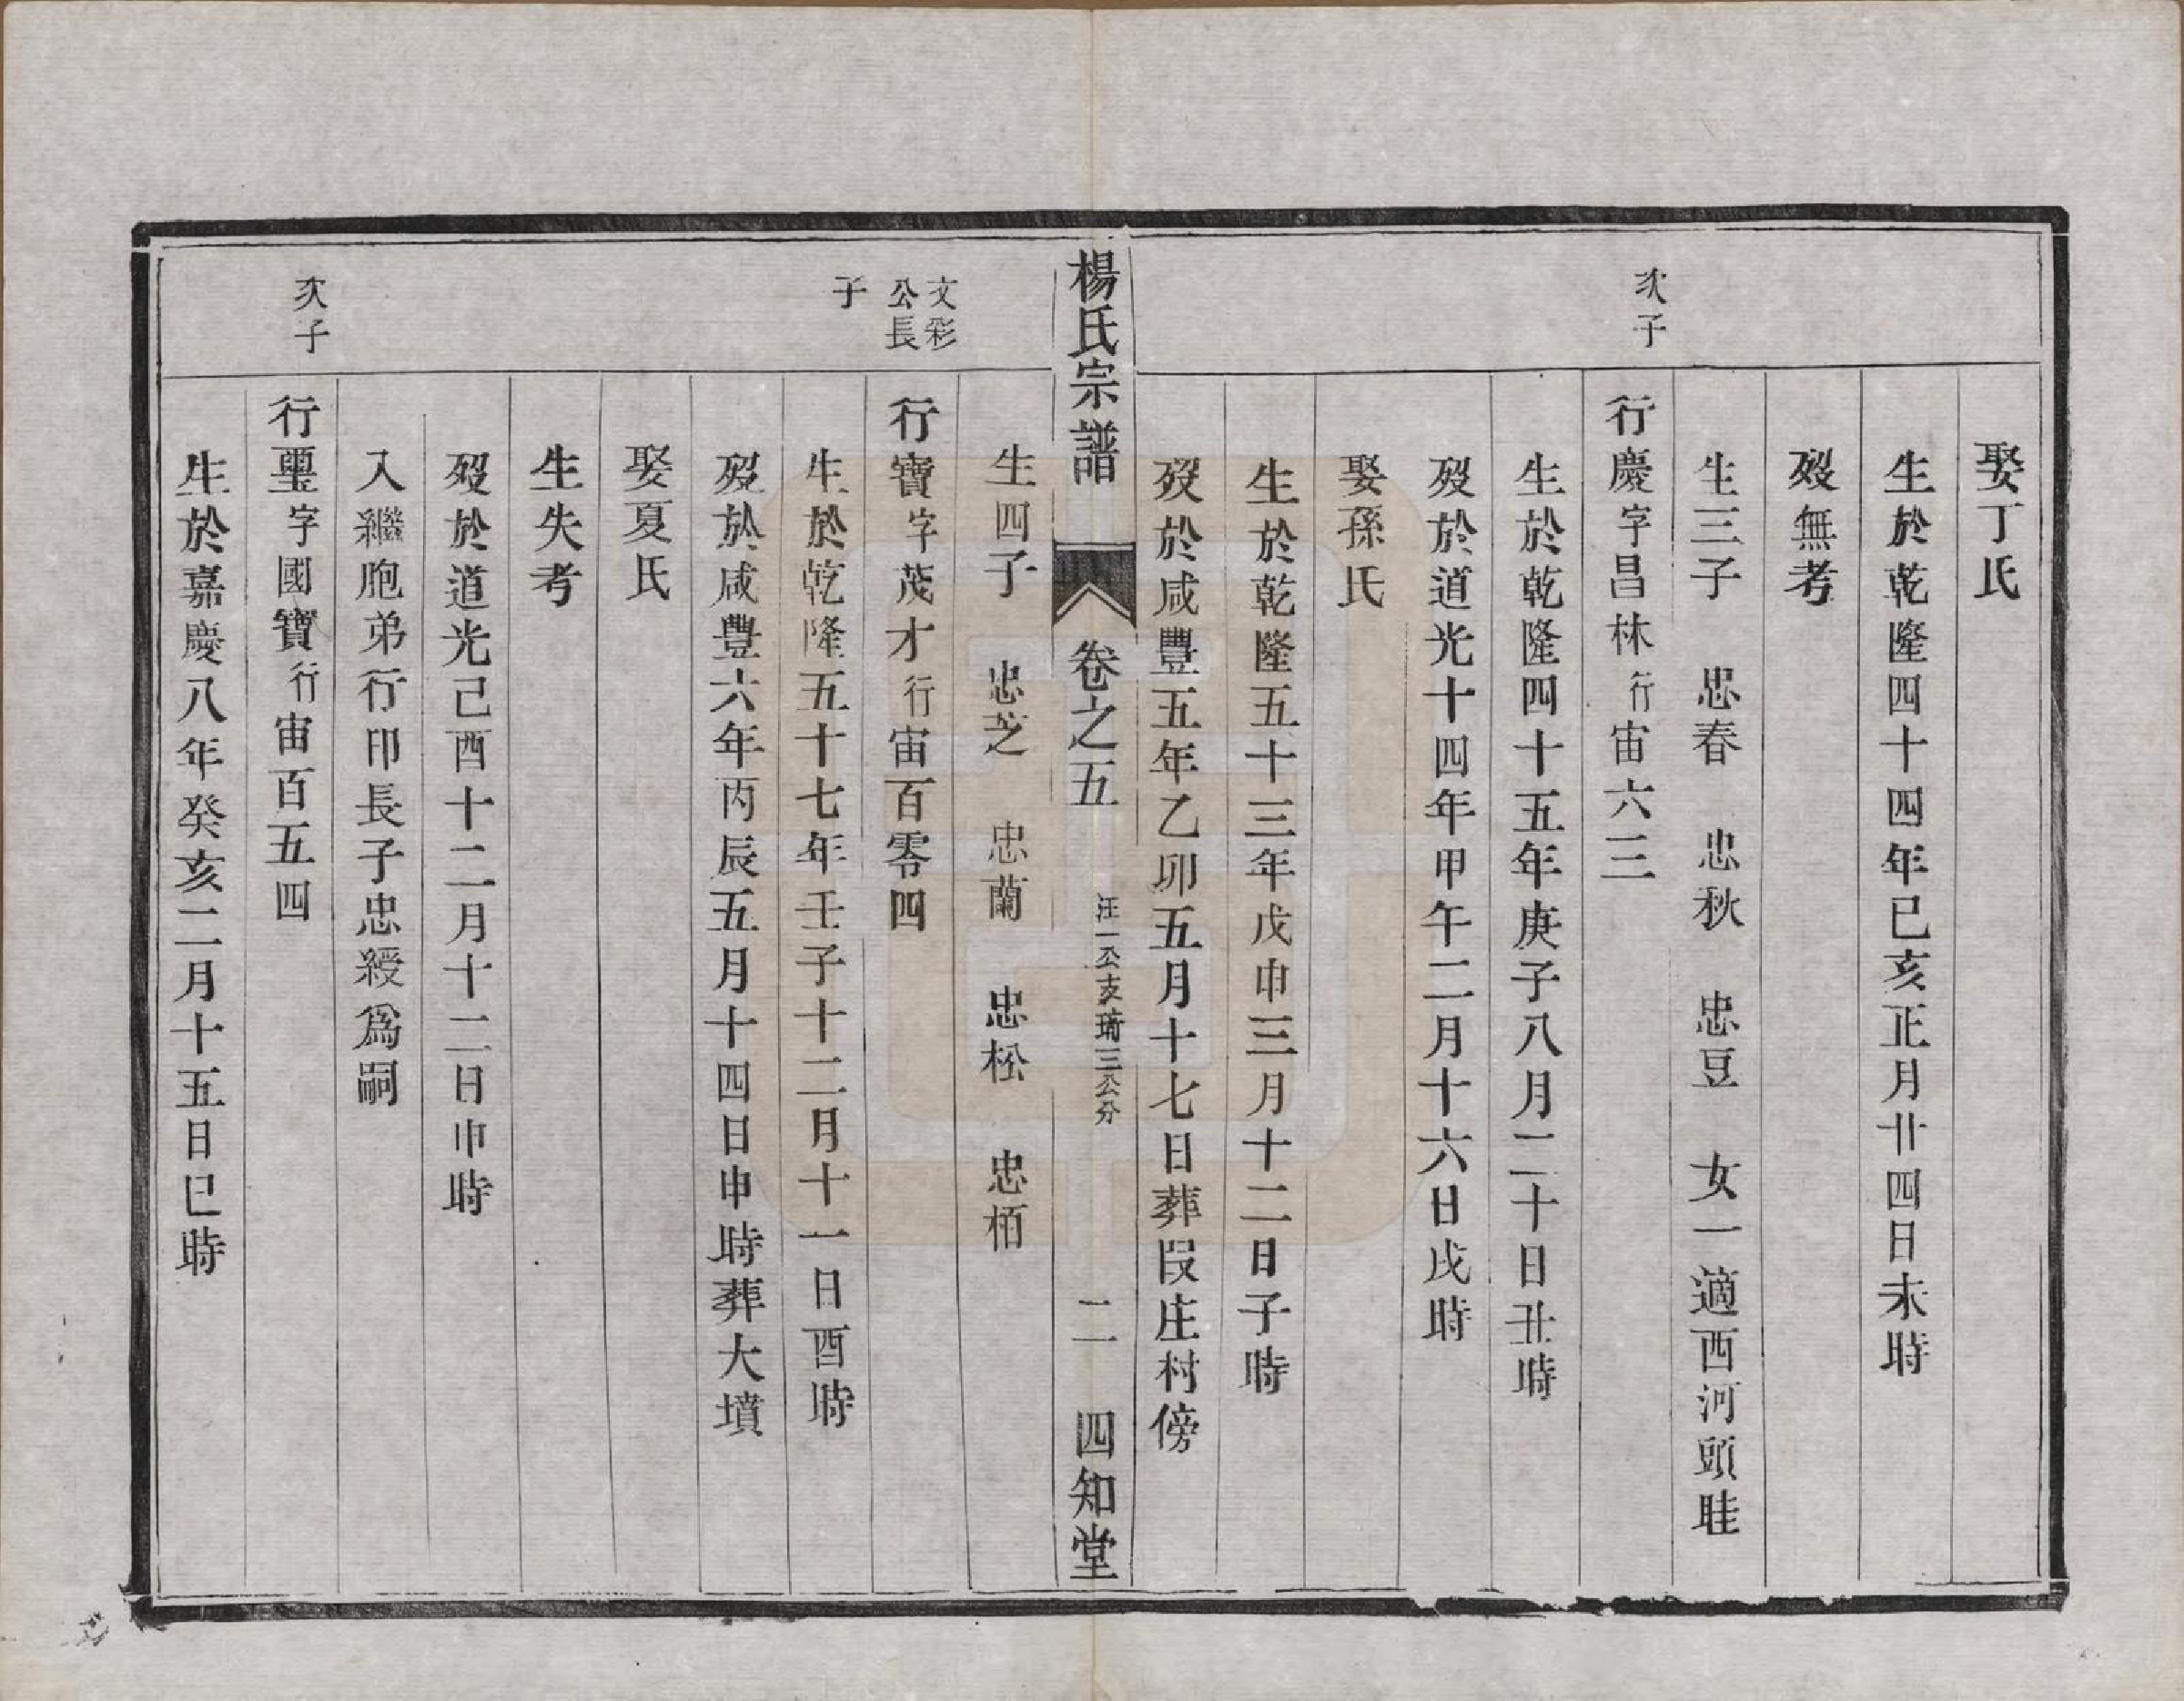 娶丁氏
生於乾隆四十四年己亥正月廿四日未時
歿無考
生三子　忠春　忠秋　忠豆　女一適西河頭眭
次子
行慶字昌林行宙六三
生於乾隆四十五年庚子八月二十日丑時
歿於道光十四年甲午二月十六日戌時
娶孫氏
生於乾隆五十三年戊申三月十二日子時
歿於咸豐五年乙卯五月十七日葬段庄村傍
楊氏宗譜　卷之五　汪一公支瑞三公分　二　四知堂
生四子　忠芝　忠蘭　忠松　忠栢
文彩公長子
行寶字茂才行宙百零四
生於乾隆五十七年壬子十二月十一日酉時
歿於咸豐六年丙辰五月十四日申時葬大墳
娶夏氏
生失考
歿於道光己酉十二月十二日申時
入繼胞弟行印長子忠綬爲嗣
次子
行璽字國寶行宙百五四
生於嘉慶八年癸亥二月十五日巳時